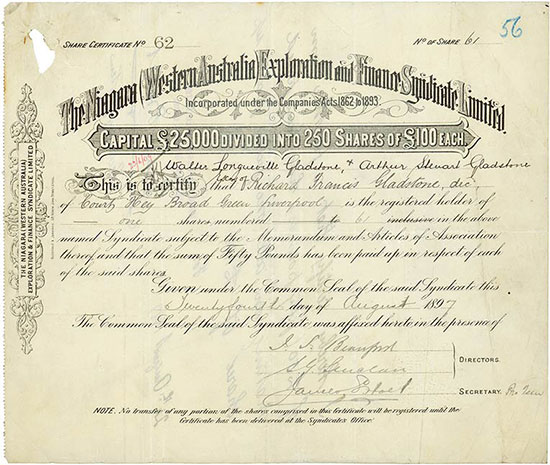 56
SHARE CERTIFICATE No 62
No OF SHARE 61
The Niagara (Western Australia) Exploration and Finance Syndicate Limited
Incorporated under the Companies Acts, 1862 to 1893.
CAPITAL £25,000 DIVIDED INTO 250 SHARES OF £100 EACH.
Walter Longueville Gladstone, & Arthur Stewart Gladstone
This is to certify that Richard Francis Gladstone, dec
of Court Hey Broad Green Liverpool is the registered holder of
one shares numbered to 61 inclusive in the above
named Syndicate subject to the Memorandum and Articles of Association
thereof and that the sum of Fifty Pounds has been paid up in respect of each
of the said shares.
Given under the Common Seal of the said Syndicate this
Twentyfourth day of August 1897
The Common Seal of the said Syndicate was affixed hereto in the presence of
DIRECTORS.
SECRETARY.
NOTE. No transfer of any portion of the shares comprised in this Certificate will be registered until the
Certificate has been delivered at the Syndicates Office.
THE NIAGARA (WESTERN AUSTRALIA)
EXPLORATION & FINANCE SYNDICATE LIMITED